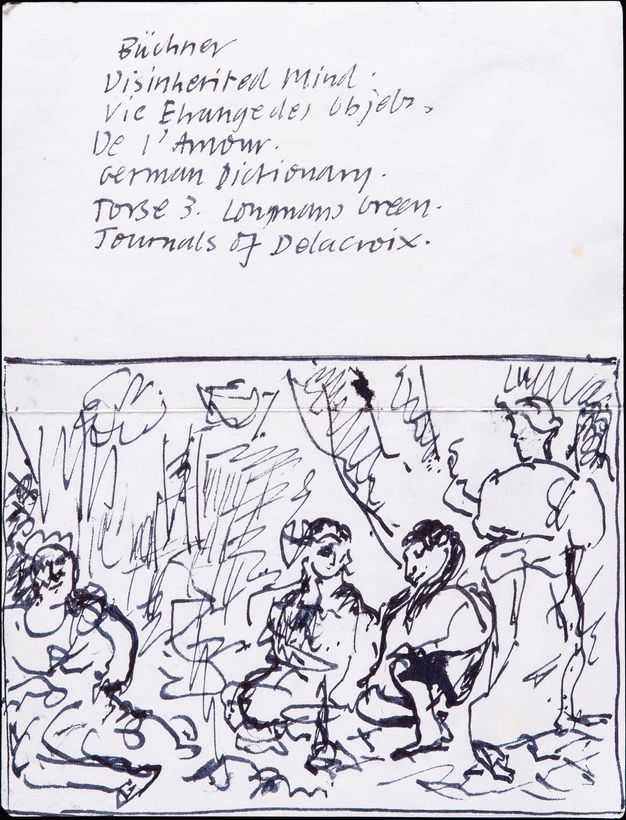 Büchner
Disinherited Mind.
Vie Etrange des Objets.
De l'Amour.
German Dictionary.
Torse 3. Longmans Green.
Journals of Delacroix.